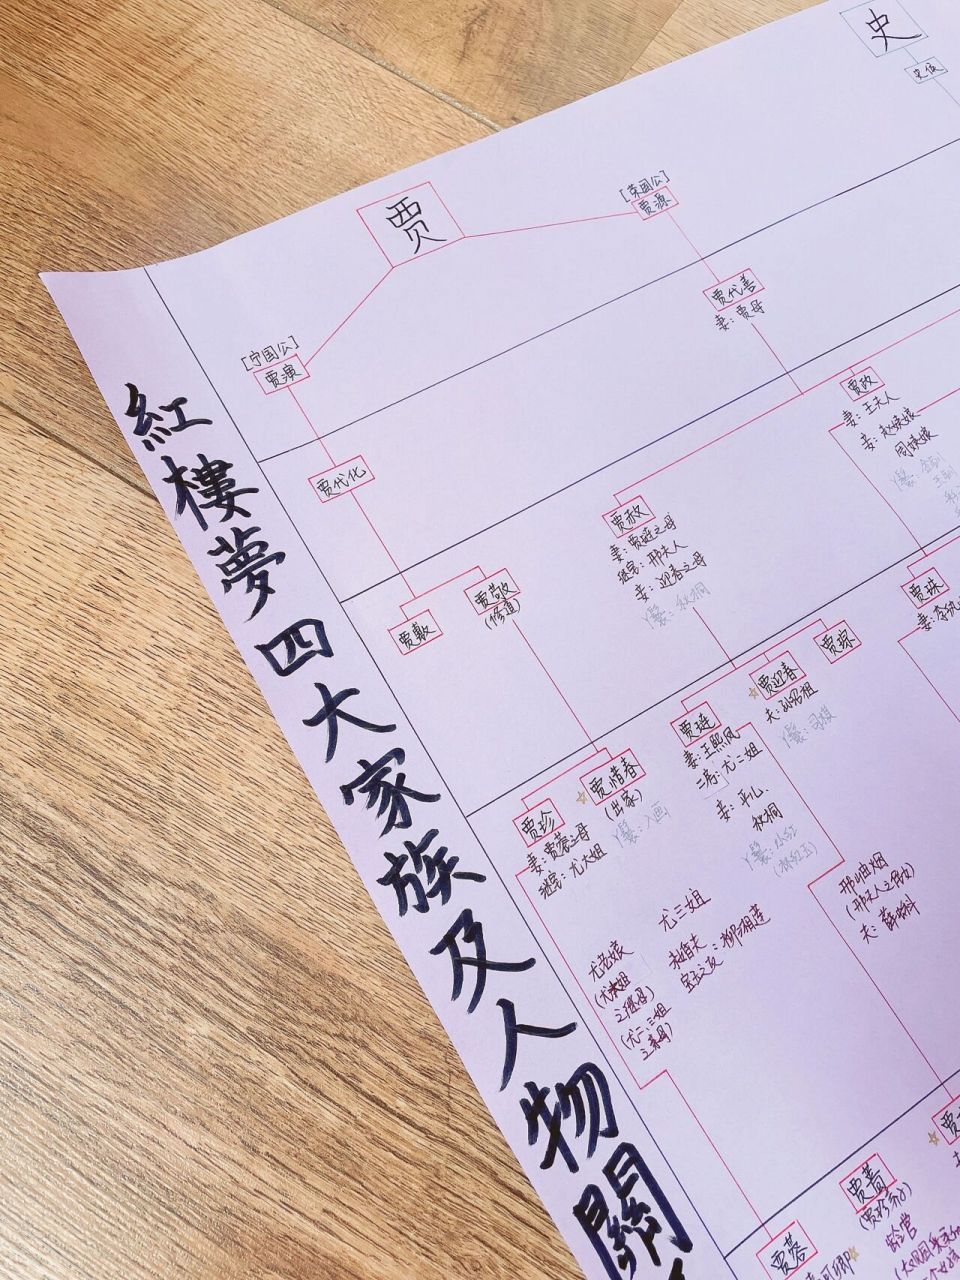 紅樓夢四大家族及人物關
史
贾
[荣国公]
贾源
贾代善
妻：贾母
[宁国公]
贾演
贾代化
贾敷
贾敬
(修道)
贾赦
妻：贾琏之母
继室：邢夫人
妾：迎春之母
丫鬟：秋桐
贾政
妻：王夫人
妾：赵姨娘
周姨娘
贾珠
贾琏
妻：王熙凤
二房：尤二姐
妾：平儿、
秋桐
丫鬟：小红
(林红玉)
贾迎春
夫：孙绍祖
丫鬟：司棋
贾琮
贾珍
妻：贾蓉之母
继室：尤大姐
贾惜春
(出家)
丫鬟：入画
尤三姐
未婚夫：柳湘莲
宝玉之友
尤老娘
(尤大姐
之继母)
(尤二、三姐
之亲母)
邢岫烟
夫：薛蝌
贾蔷
贾蓉